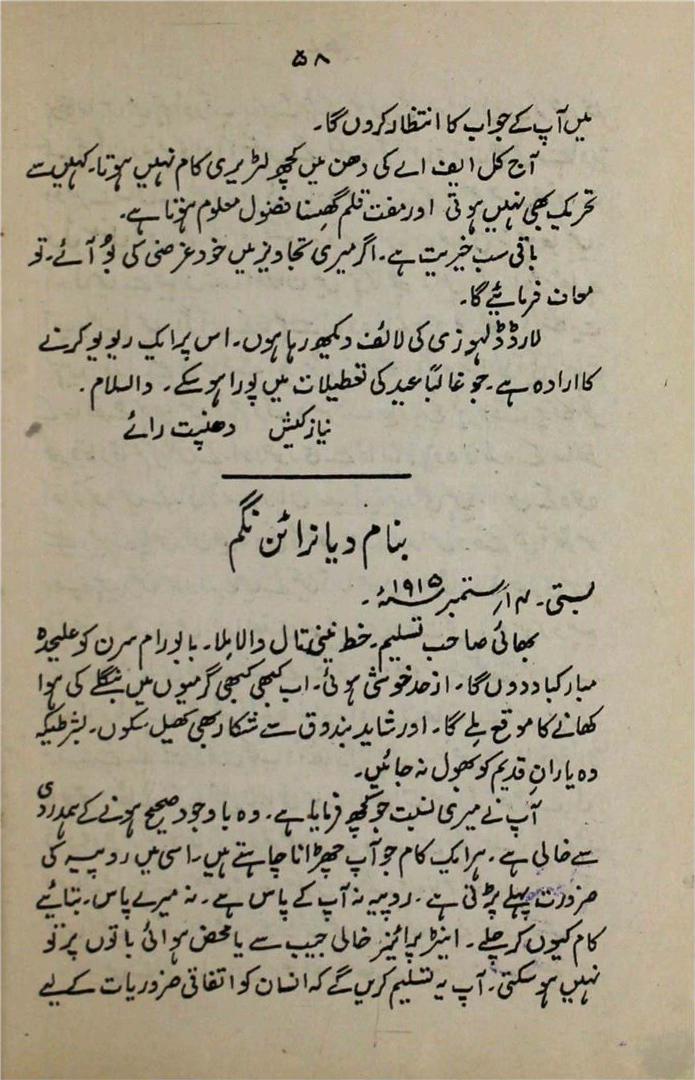 ۵۸
میں آپ کے جواب کا انتظار کروں گا۔
آج کل ایف اے کی دھن میں کچھ لٹریری کام نہیں ہوتا۔ کہیں سے
تحریک بھی نہیں ہوتی اور مفت قلم گھسنا فضول معلوم ہوتا ہے۔
باقی سب خیریت ہے۔ اگر میری تجاویز میں خود غرضی کی بُو آئے۔ تو
معاف فرمائیے گا۔
لارڈ ڈلہوزی کی لائف دیکھ رہا ہوں۔ اس پر ایک ریویو کرنے
کا ارادہ ہے۔ جو غالباً عید کی تعطیلات میں پورا ہو سکے۔ والسلام۔
نیاز کیش دھنپت رائے
بنام دیا نرائن نگم
بستی۔ ۴؍ ستمبر ۱۹۱۵ء۔
بھائی صاحب تسلیم۔ خط نینی تال والا ملا۔ بابو رام سرن کو علیحدہ
مبارکباد دوں گا۔ از حد خوشی ہوئی۔ اب کبھی کبھی گرمیوں میں بنگلے کی ہوا
کھانے کا موقع ملے گا۔ اور شاید بندوق سے شکار بھی کھیل سکوں۔ بشرطیکہ
وہ یارانِ قدیم کو بھول نہ جائیں۔
آپ نے میری نسبت جو کچھ فرمایا ہے۔ وہ باوجود صحیح ہونے کے ہمدردی
سے خالی ہے۔ ہر ایک کام جو آپ چھڑانا چاہتے ہیں۔ اسی میں روپیہ کی
ضرورت پہلے پڑتی ہے۔ روپیہ نہ آپ کے پاس ہے۔ نہ میرے پاس۔ بتائیے
کام کیوں کر چلے۔ اینٹرپرائیز خالی جیب سے یا محض ہوائی باتوں پر تو
نہیں ہو سکتی۔ آپ یہ تسلیم کریں گے کہ انسان کو اتفاقی ضروریات کے لیے